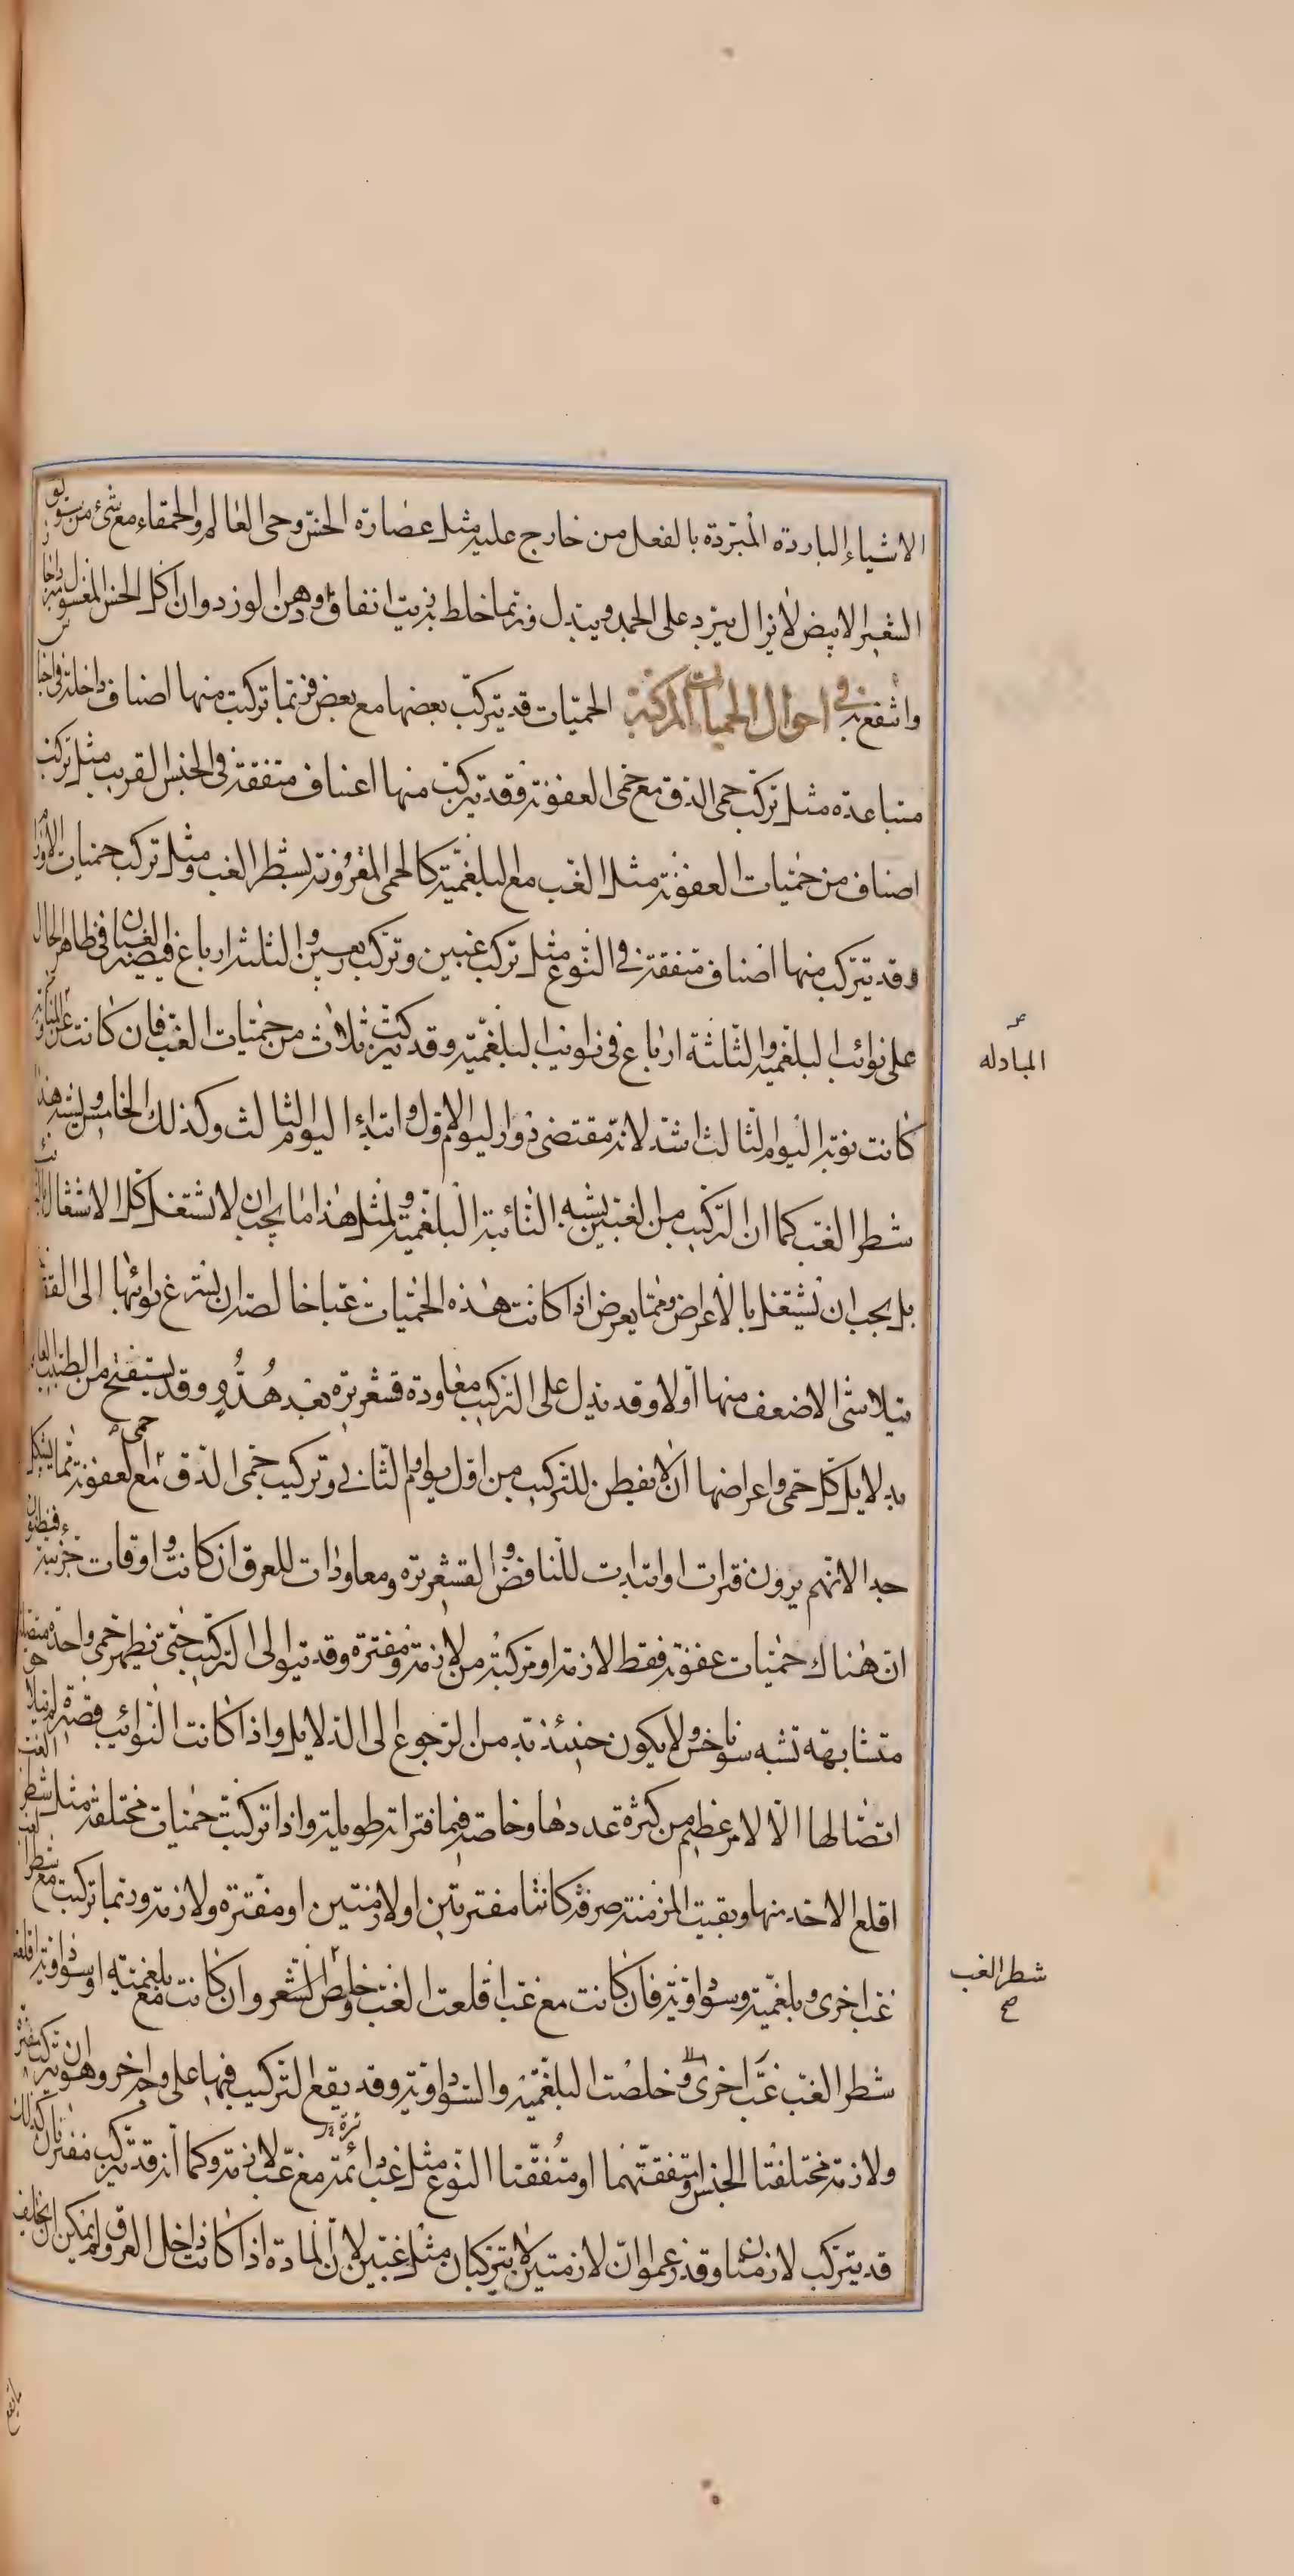 الاشياء الباردة المبردة بالفعل من خارج عليه مثل عصارة الخس وحى العالم والحمقاء مع شئ من سويق
الشعير الابيض لا يزال يبرد على الجمد ويبدل وربما خلط بزيت انفاق ودهن لوز دوان اكل الخس المغسول
وانتفع به فى احوال الحميات المركبة الحميات قد يتركب بعضها مع بعض فربما تركبت منها اصناف داخلة فى اجناس
متباعدة مثل تركب حمى الدق مع حمى العفونة فقد يتركب منها اعناف متفقة فى الجنس القريب مثل تركب
اصناف من حميات العفونة مثل الغب مع البلغمية كالحمى المقرونة بشطر الغب ومثل تركب حميات الاورام
وقد يتركب منها اصناف متفقة فى النوع مثل تركب غبين وتركب ربعين والثلثة ارباع فيصير الغبان فى ظاهر الحال
على نوائب البلغمية والثلثة ارباع فى نوايب البلغمية وقد يتركب ثلاث من حميات الغب فان كانت على المناوبة
كانت نوبة اليوم الثالث اشد لانه مقتضى دوار اليوم الاول وابتداء اليوم الثالث وكذلك الخامس ويشبه هذا
شطر الغب كما ان التركيب من الغبين يشبه النائبة البلغمية ولمثل هذا ما يجب ان لا تشتغل كل الاشتغال
بل يجب ان تشتغل بالاعراض ومما يعرض اذا كانت هذه الحميات غبا خالصة ان يسرع نوائبها الى القصر
يتلاشى الاضعف منها اولا وقد يدل على التركيب معاودة قشعريرة بعد هدو وقد يستفتح من الطبيب العالم
بدلايل كل حمى واعراضها ان لا يفطن للتركيب من اول يوم او الثانى وتركيب حمى الدق مع حمى العفونة مما يشكل
جدا لانهم يرون فترات او ابتداات للنافض والقشعريرة ومعاودات للعرق ان كانت واوقات جزئية فيظنون
ان هناك حميات عفونة فقط لازمة او مركبة من لازمة ومفترة وقد يتوالى التركيب حتى تظهر حمى واحدة متصلة
متشابهة تشبه سوناخوس ولا يكون حينئذ بد من الرجوع الى الدلايل واذا كانت النوائب قصيرة لم يتلاحق
اتصالها الا لامر عظيم من كثرة عددها وخاصة فيما فتراته طويلة واذا تركبت حميات مختلفة مثل شطر الغب
اقلع الاحد منها وبقيت المزمنة صرفة كانتا مفترتين او لازمتين او مفترة ولازمة وربما تركبت مع شطر الغب
غب اخرى وبلغمية وسوداوية فان كانت مع غب اقلعت الغب وخلص الشعر وان كانت مع بلغمية او سوداوية اقلعت
شطر الغب غب اخرى وخلصت البلغمية والسوداوية وقد يقع التركيب فيها على وجه اخر وهو ان تركب مفترة
ولازمة مختلفتا الجنس او متفقتهما او متفقتا النوع مثل غب دائمة مع غب لازمة وكما انه قد يتركب مفترتان كذلك
قد يتركب لازمتان وقد زعموا ان لازمتين لا يتركبان مثل غبين لان المادة اذا كانت داخل العروق لم يمكن ان يختلف
المبادله
شطر الغب
صح